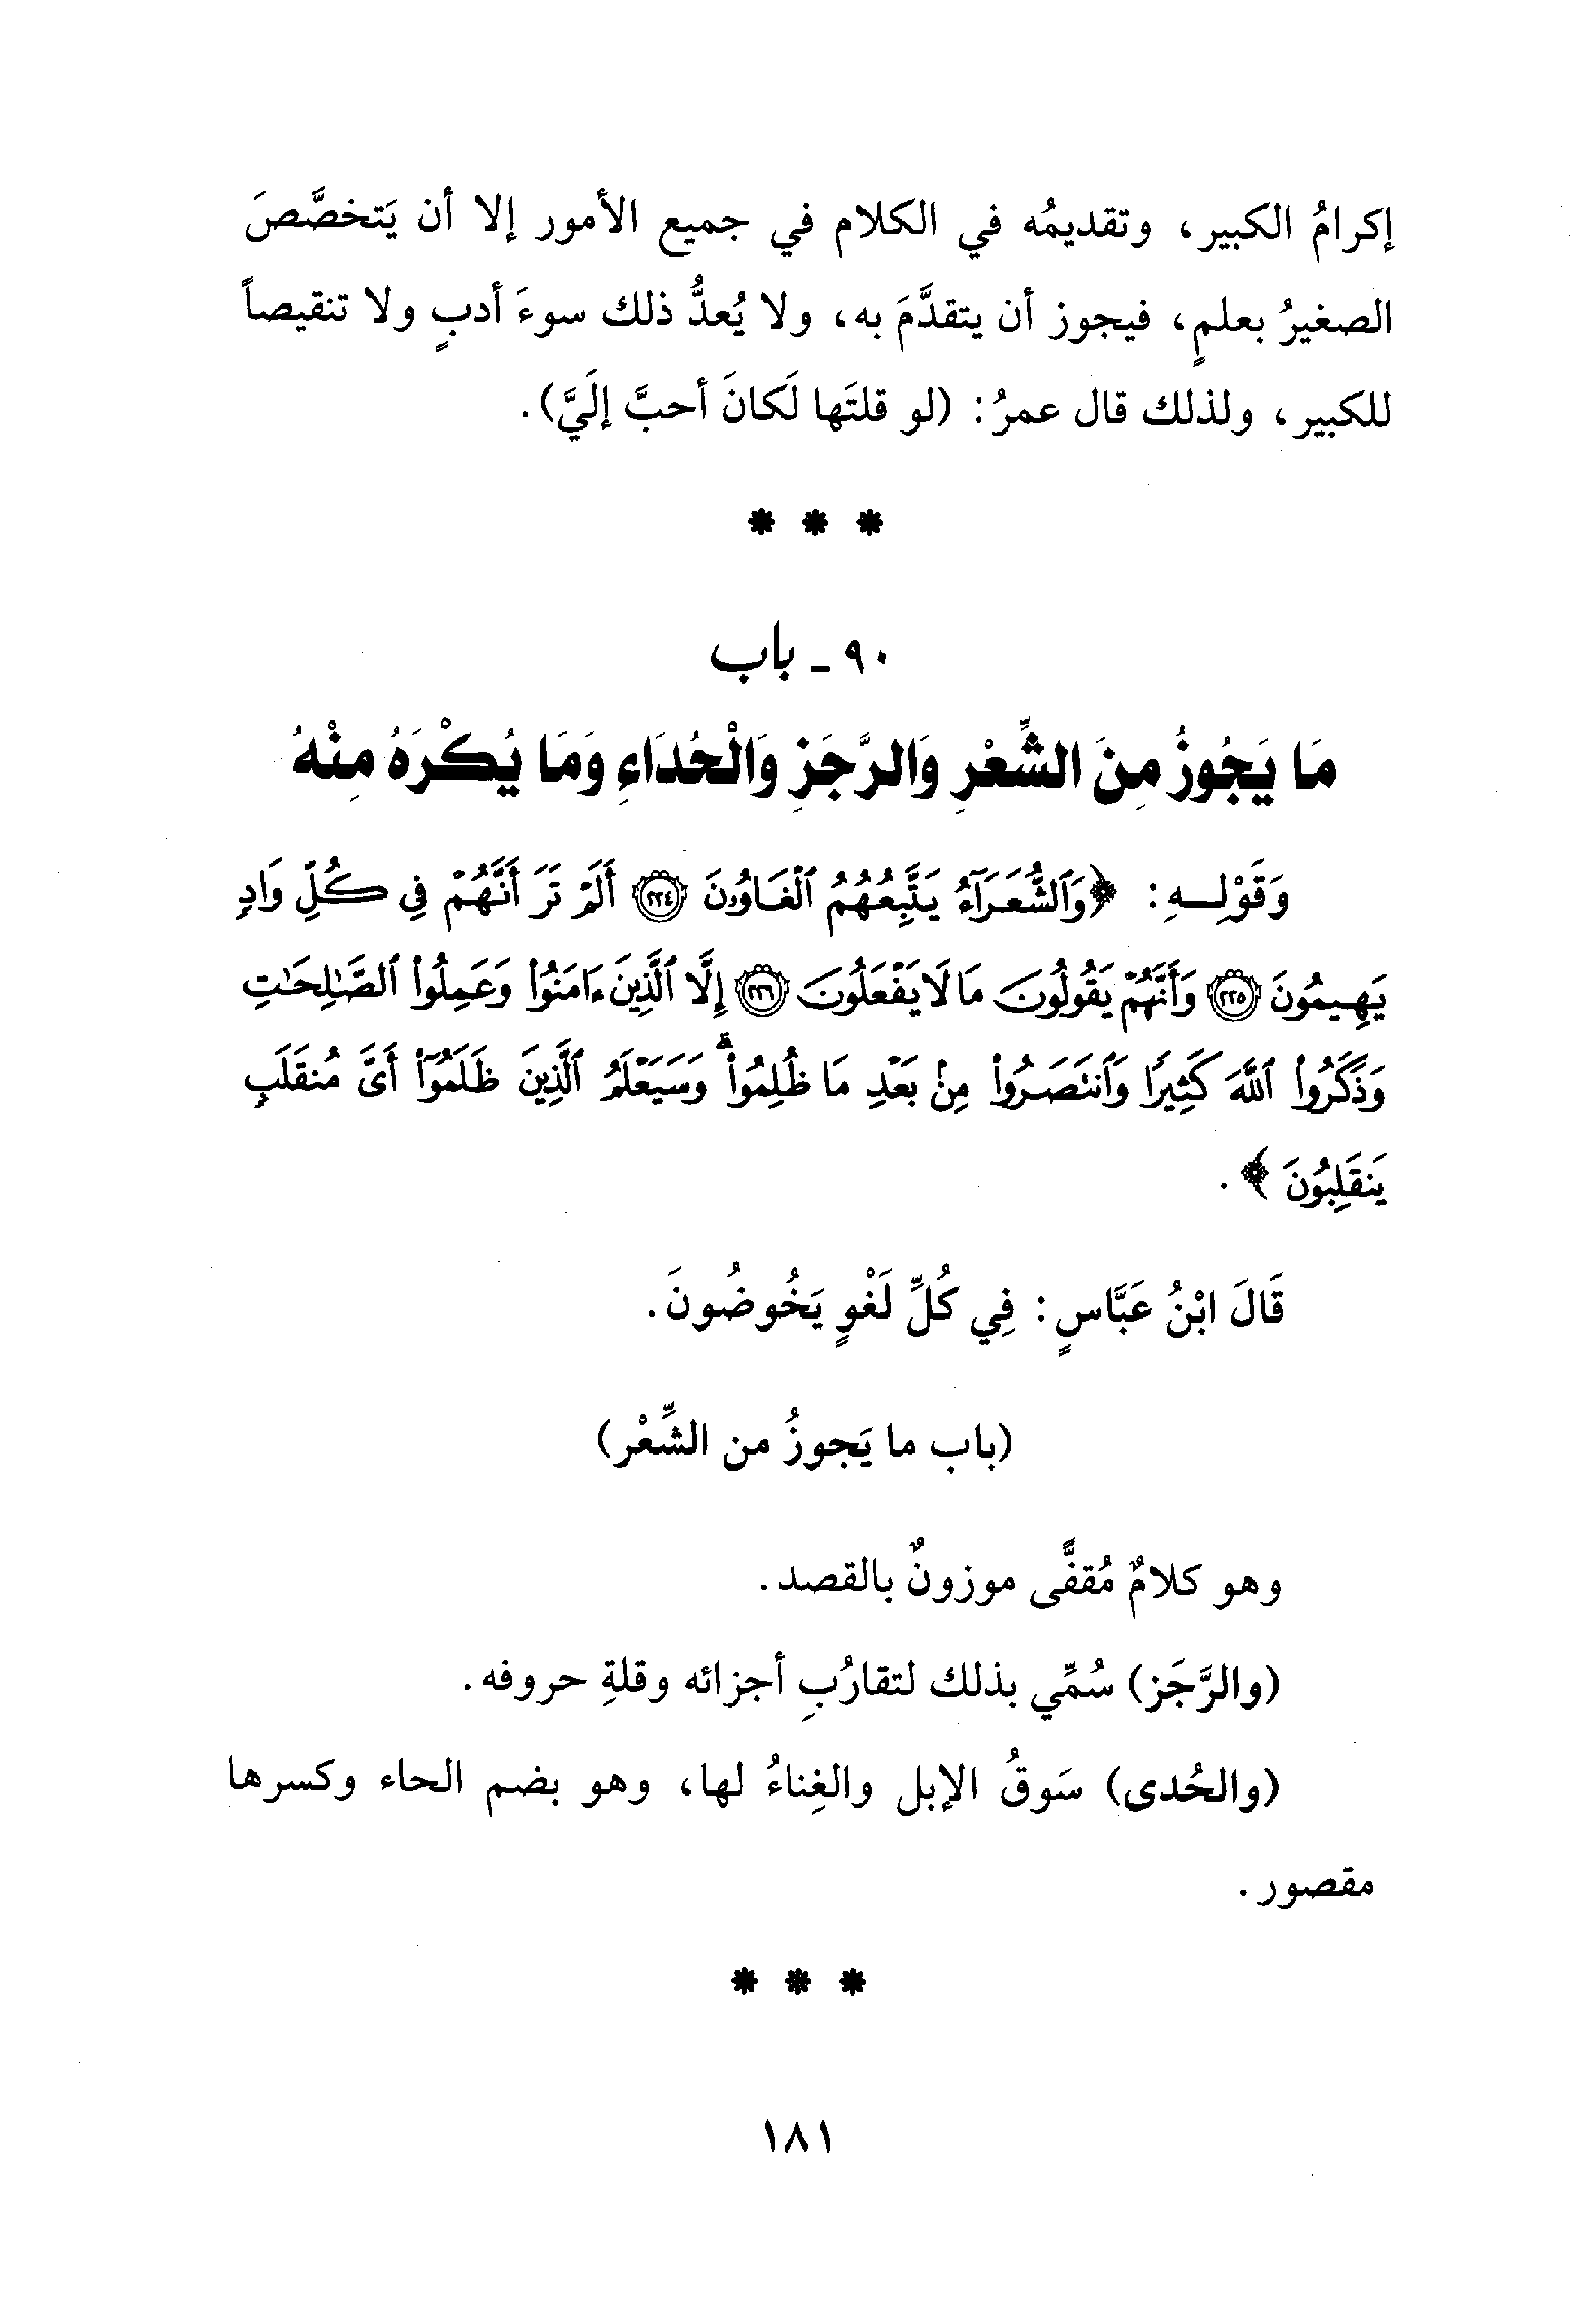 إكرامُ الكبير، وتقديمُه في الكلام في جميع الأمور إلا أن يَتخصَّصَ
الصغيرُ بعلمٍ، فيجوز أن يتقدَّمَ به، ولا يُعدُّ ذلك سوءَ أدبٍ ولا تنقيصاً
للكبير، ولذلك قال عمرُ: (لو قلتَها لَكانَ أحبَّ إلَيَّ).
* * *
٩٠ - باب
مَا يَجُوزُ مِنَ الشِّعْرِ وَالرَّجَزِ وَالْحُدَاءِ وَمَا يُكْرَهُ مِنْهُ
وَقَوْلِـــهِ: ﴿وَٱلشُّعَرَآءُ يَتَّبِعُهُمُ ٱلْغَاوُۥنَ ۝٢٢٤ أَلَمْ تَرَ أَنَّهُمْ فِي كُلِّ وَادٍ
يَهِيمُونَ ۝٢٢٥ وَأَنَّهُمْ يَقُولُونَ مَا لَا يَفْعَلُونَ ۝٢٢٦ إِلَّا ٱلَّذِينَ ءَامَنُوا۟ وَعَمِلُوا۟ ٱلصَّٰلِحَٰتِ
وَذَكَرُوا۟ ٱللَّهَ كَثِيرًا وَٱنتَصَرُوا۟ مِنۢ بَعْدِ مَا ظُلِمُوا۟ ۗ وَسَيَعْلَمُ ٱلَّذِينَ ظَلَمُوٓا۟ أَىَّ مُنقَلَبٍ
يَنقَلِبُونَ﴾.
قَالَ ابْنُ عَبَّاسٍ: فِي كُلِّ لَغْوٍ يَخُوضُونَ.
(باب ما يَجوزُ من الشِّعْر)
وهو كلامٌ مُقفًّى موزونٌ بالقصد.
(والرَّجَز) سُمِّي بذلك لتقارُبِ أجزائه وقلةِ حروفه.
(والحُدى) سَوقُ الإبل والغِناءُ لها، وهو بضم الحاء وكسرها
مقصور.
* * *
١٨١